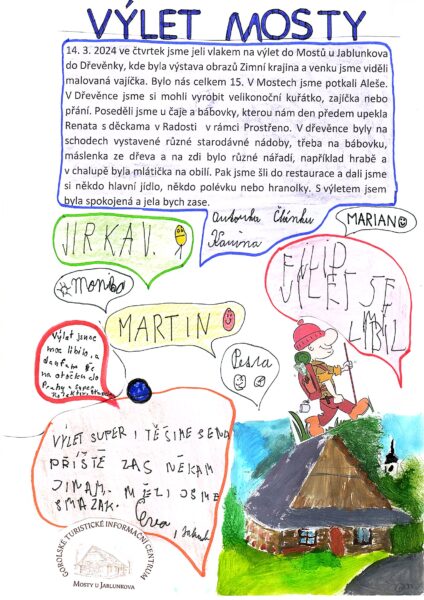 VÝLET MOSTY
14. 3. 2024 ve čtvrtek jsme jeli vlakem na výlet do Mostů u Jablunkova
do Dřevěnky, kde byla výstava obrazů Zimní krajina a venku jsme viděli
malovaná vajíčka. Bylo nás celkem 15. V Mostech jsme potkali Aleše.
V Dřevěnce jsme si mohli vyrobit velikonoční kuřátko, zajíčka nebo
přání. Poseděli jsme u čaje a bábovky, kterou nám den předem upekla
Renata s děckama v Radosti v rámci Prostřeno. V dřevěnce byly na
schodech vystavené různé starodávné nádoby, třeba na bábovku,
máslenka ze dřeva a na zdi bylo různé nářadí, například hrabě a
v chalupě byla mlátička na obilí. Pak jsme šli do restaurace a dali jsme
si někdo hlavní jídlo, někdo polévku nebo hranolky. S výletem jsem
byla spokojená a jela bych zase.
autorka Článku
Karina
MARIAN
JIRKA V.
FILIP
VÝLET SE
LÍBIL
Monika
MARTIN
Výlet jsme
moc líbilo, a
doufám že
na otočku do
Prahy
Petra
VÝLET SUPER I TĚŠIME SE NA
PŘÍŠTĚ ZAS NĚKAM
JINAM. MĚLI JSME
SMAZAK.
GOROLSKÉ TURISTICKÉ INFORMAČNÍ CENTRUM
MOSTY U JABLUNKOVA